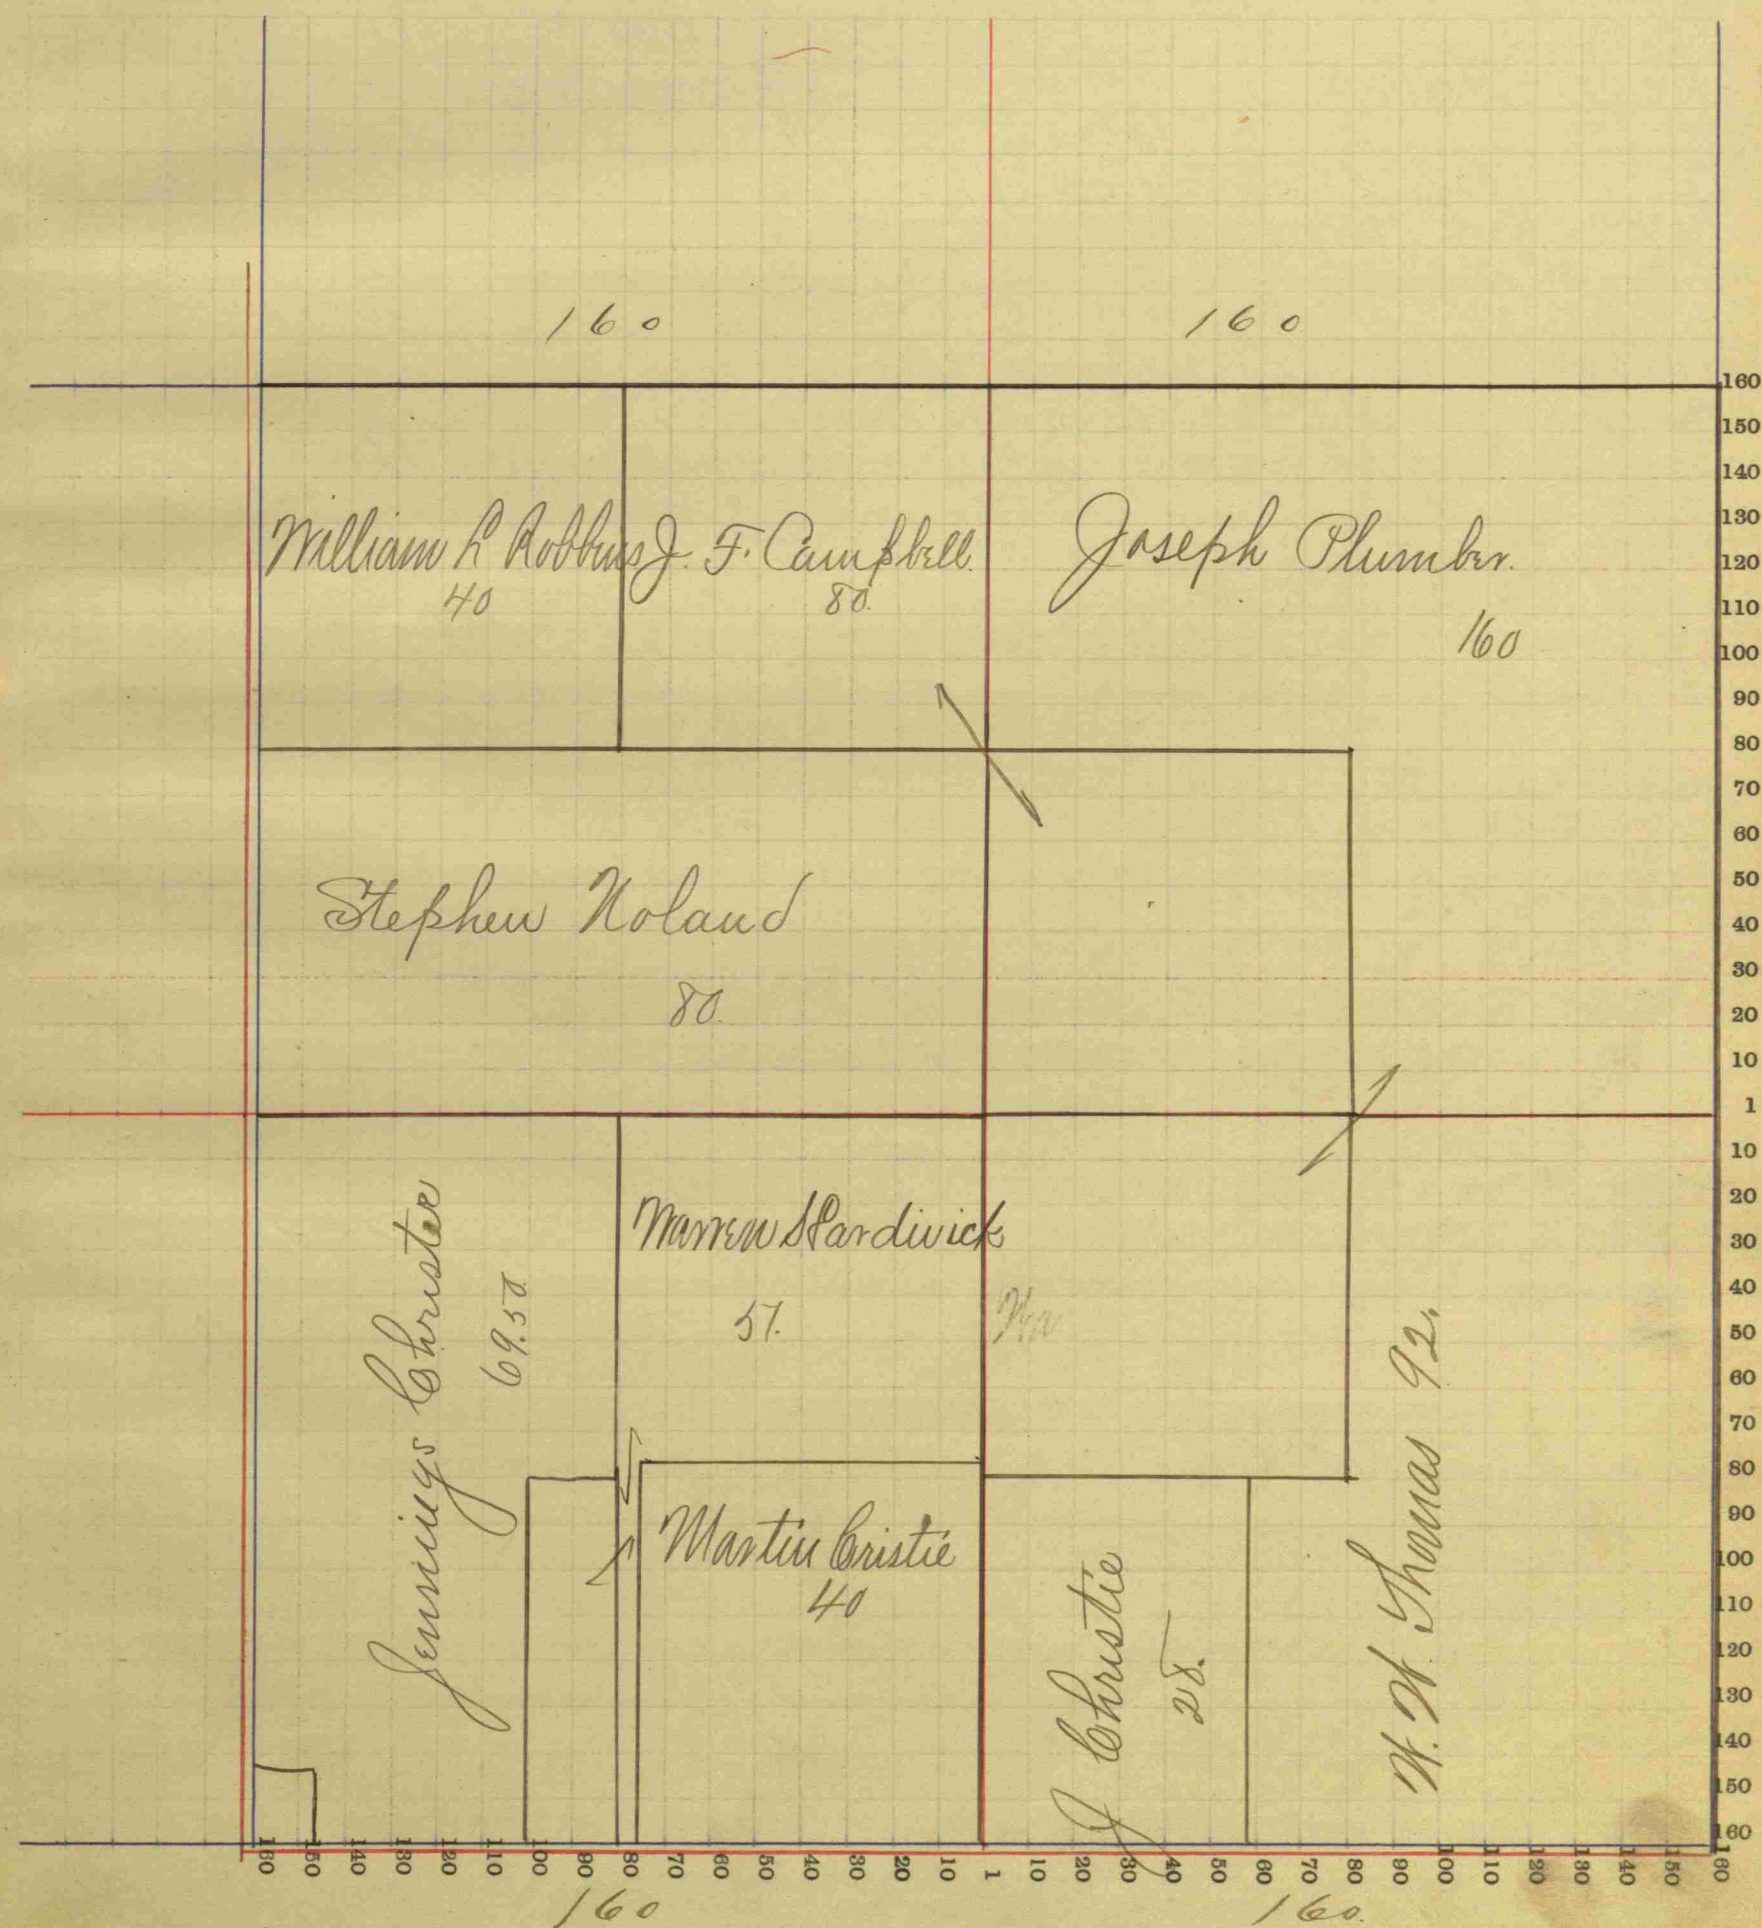 160
160
William R Robbins
40
J. F. Campbell.
80.
Joseph Plumber.
160
Stephen Noland
80.
Jennings Christee
69.50
Warren Hardwick
57.
Wa
Martin Cristie
40
J Christie
28.
W. W. Thomas 92.
160
150
140
130
120
110
100
90
80
70
60
50
40
30
20
10
1
10
20
30
40
50
60
70
80
90
100
110
120
130
140
150
160
160 150 140 130 120 110 100 90 80 70 60 50 40 30 20 10 1 10 20 30 40 50 60 70 80 90 100 110 120 130 140 150 160
160
160.